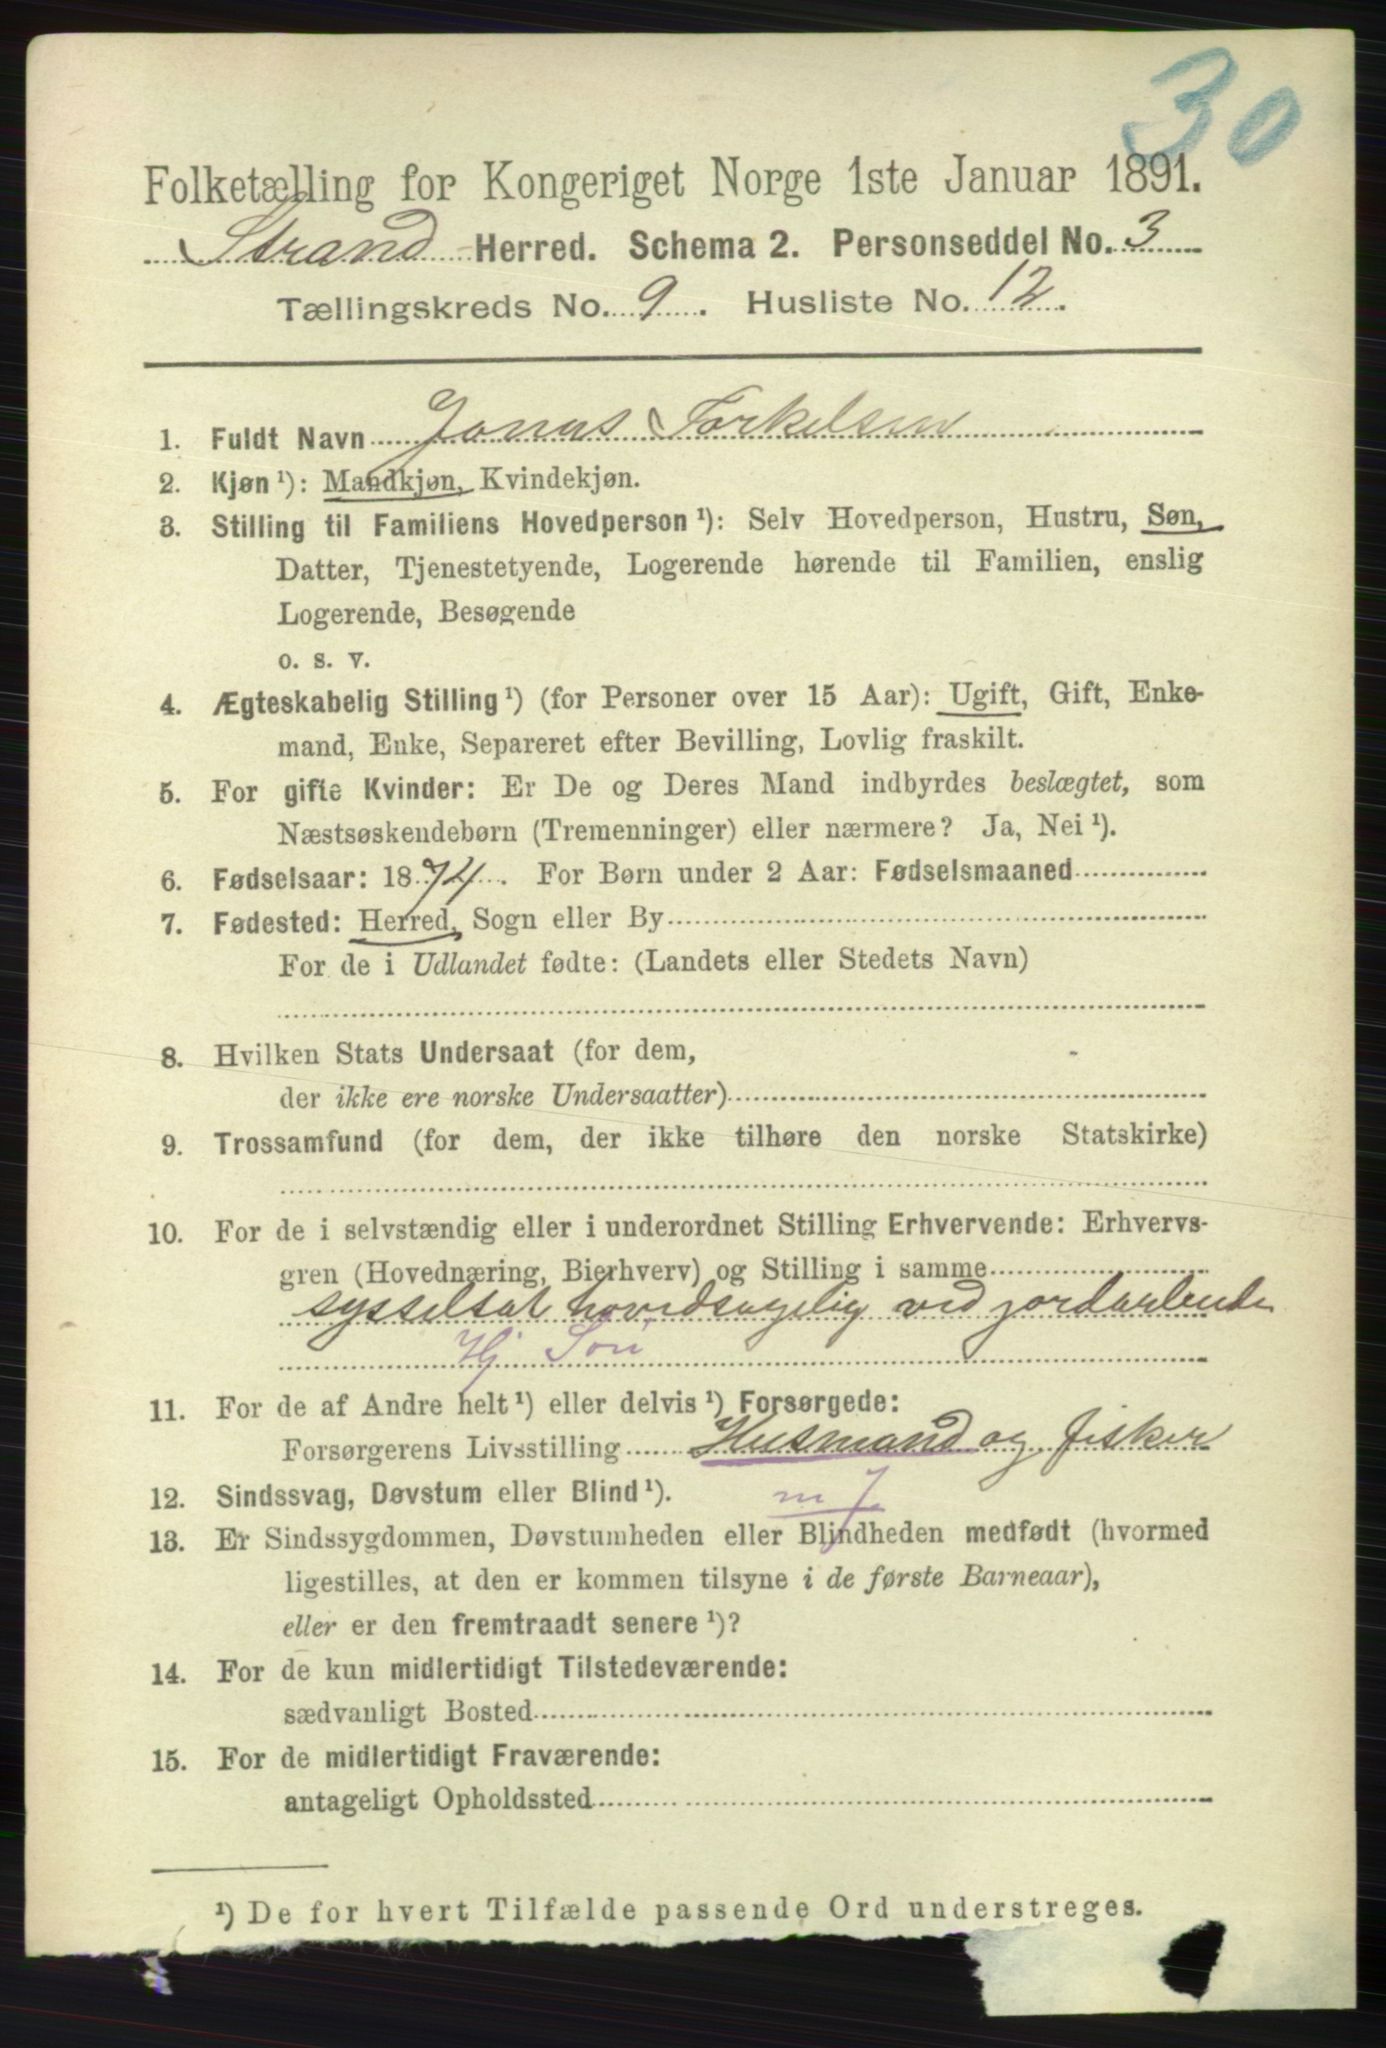 30
Folketælling for Kongeriget Norge 1ste Januar 1891.
Strand Herred. Schema 2. Personseddel No. 3
Tællingskreds No. 9. Husliste No. 12.
1. Fuldt Navn Jonas Torkelsen
2. Kjøn ¹): Mandkjøn, Kvindekjøn.
3. Stilling til Familiens Hovedperson ¹): Selv Hovedperson, Hustru, Søn,
Datter, Tjenestetyende, Logerende hørende til Familien, enslig
Logerende, Besøgende
o. s. v.
4. Ægteskabelig Stilling ¹) (for Personer over 15 Aar): Ugift, Gift, Enke-
mand, Enke, Separeret efter Bevilling, Lovlig fraskilt.
5. For gifte Kvinder: Er De og Deres Mand indbyrdes beslægtet, som
Næstsøskendebørn (Tremenninger) eller nærmere? Ja, Nei ¹).
6. Fødselsaar: 1874. For Børn under 2 Aar: Fødselsmaaned
7. Fødested: Herred, Sogn eller By
For de i Udlandet fødte: (Landets eller Stedets Navn)
8. Hvilken Stats Undersaat (for dem,
der ikke ere norske Undersaatter)
9. Trossamfund (for dem, der ikke tilhøre den norske Statskirke)
10. For de i selvstændig eller i underordnet Stilling Erhvervende: Erhvervs-
gren (Hovednæring, Bierhverv) og Stilling i samme
sysselsat hovedsagelig ved jordarbeide
Hj Søn
11. For de af Andre helt ¹) eller delvis ¹) Forsørgede:
Forsørgerens Livsstilling Husmand og fisker
12. Sindssvag, Døvstum eller Blind ¹). m J
13. Er Sindssygdommen, Døvstumheden eller Blindheden medfødt (hvormed
ligestilles, at den er kommen tilsyne i de første Barneaar),
eller er den fremtraadt senere ¹)?
14. For de kun midlertidigt Tilstedeværende:
sædvanligt Bosted
15. For de midlertidigt Fraværende:
antageligt Opholdssted
¹) De for hvert Tilfælde passende Ord understreges.